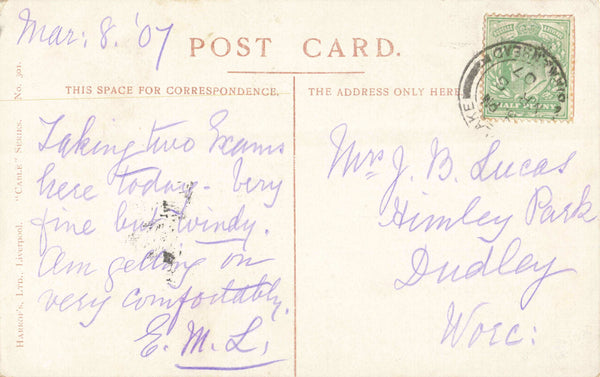 Mar: 8. '07
POST CARD.
THIS SPACE FOR CORRESPONDENCE.
THE ADDRESS ONLY HERE
HALF PENNY
Taking two Exams
here today - Very
fine but windy.
Am getting on
very comfortably.
E. M. L.
Mrs J. B. Lucas
Himley Park
Dudley
Worc:
HARROP'S, LTD., Liverpool. "CABLE" SERIES. No. 301.